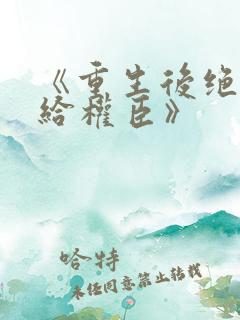 《重生後绝
給權臣》
哈特
未经同意禁止转载